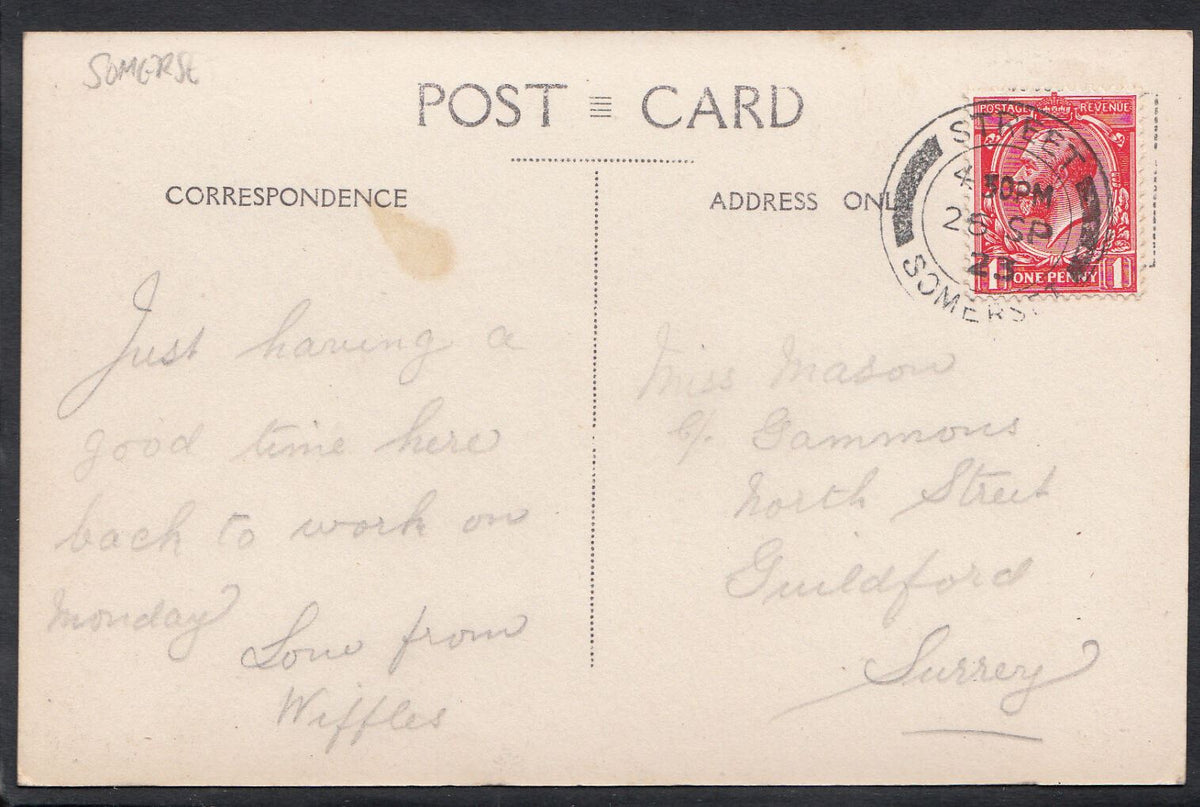 SOMERSE
POST CARD
CORRESPONDENCE
ADDRESS ONL
POSTAGE REVENUE
STREET
4 30PM
28 SP
23
SOMERSET
1 ONE PENNY 1
Just having a
good time here
back to work on
Monday
Love from
Wiffles
Miss Mason
c/. Gammons
North Street
Guildford
Surrey